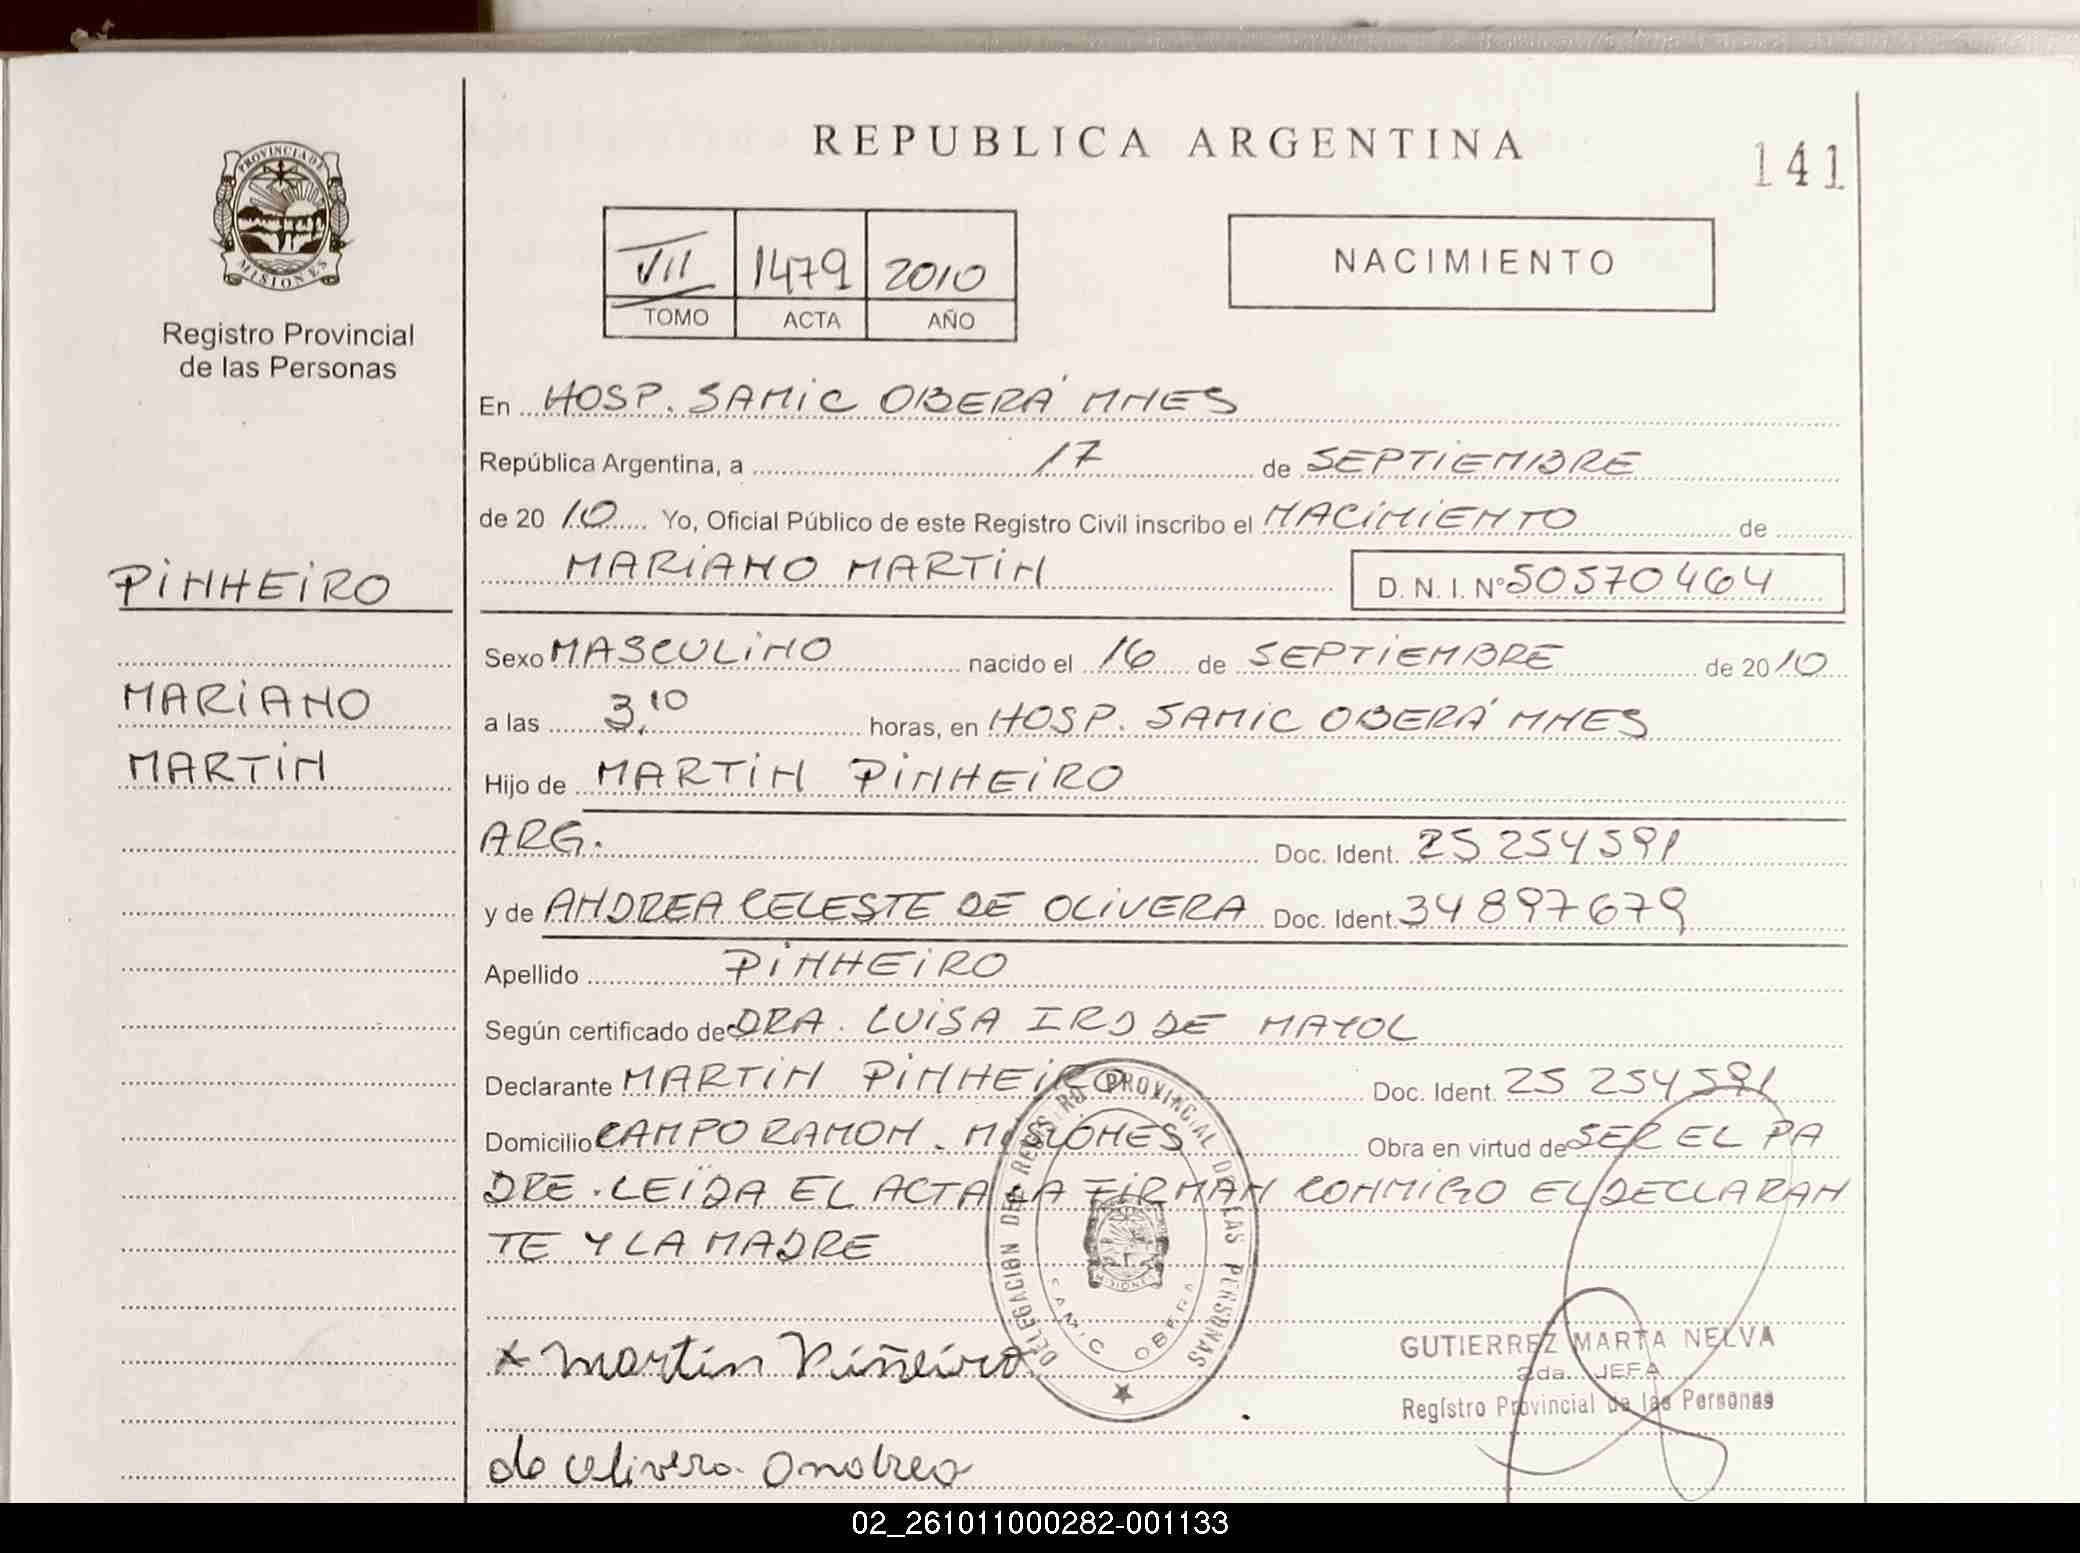 REPUBLICA ARGENTINA
141
PROVINCIA DE MISIONES
Registro Provincial
de las Personas
VII 1479 2010
TOMO ACTA AÑO
NACIMIENTO
En HOSP. SAMIC OBERÁ MNES
República Argentina, a 17 de SEPTIEMBRE
de 20 10 Yo, Oficial Público de este Registro Civil inscribo el NACIMIENTO de
MARIANO MARTIN D. N. I. Nº 50570464
PINHEIRO
MARIANO
MARTIN
Sexo MASCULINO nacido el 16 de SEPTIEMBRE de 20 10
a las 3,10 horas, en HOSP. SAMIC OBERÁ MNES
Hijo de MARTIN PINHEIRO
ARG. Doc. Ident. 25 254591
y de ANDREA CELESTE DE OLIVERA Doc. Ident. 34897679
Apellido PINHEIRO
Según certificado de DRA. LUISA DE MAYOL
Declarante MARTIN PINHEIRO Doc. Ident. 25 254591
Domicilio CAMPO RAMON. MISIONES Obra en virtud de SER EL PA
DRE. LEIDA EL ACTA LA FIRMAN CONMIGO EL DECLARAN
TE Y LA MADRE
DELEGACION DEL REGISTRO PROVINCIAL DE LAS PERSONAS
SAMIC OBERA
x Martin Piñeiro
de Olivera Andrea
GUTIERREZ MARTA NELVA
2da. JEFA
Registro Provincial de las Personas
02_261011000282-001133